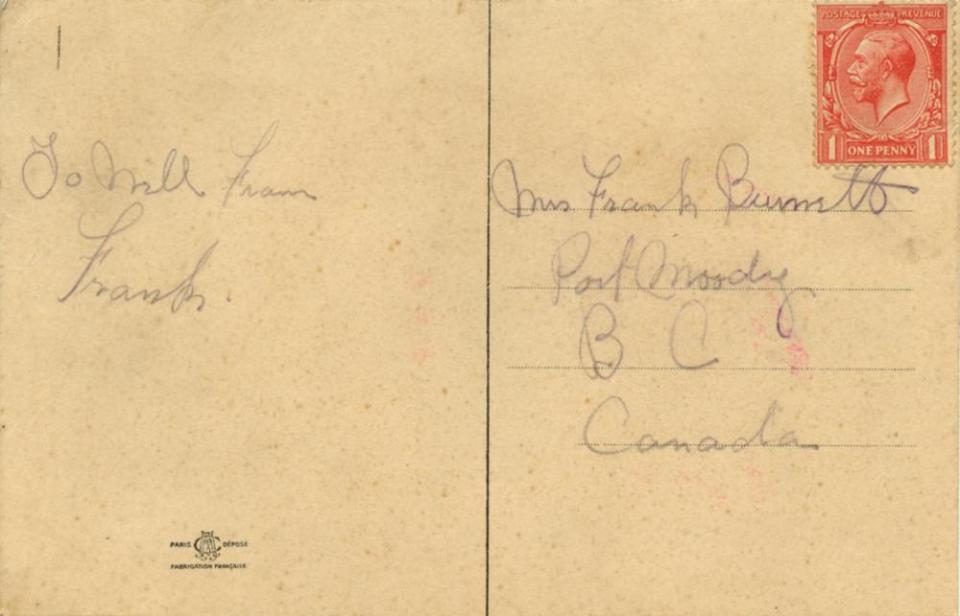 To Nell From
Frank.
PARIS DÉPOSÉ
FABRICATION FRANÇAISE
POSTAGE REVENUE
1 ONE PENNY 1
Mrs Frank Burnett
Port Moody
B C
Canada